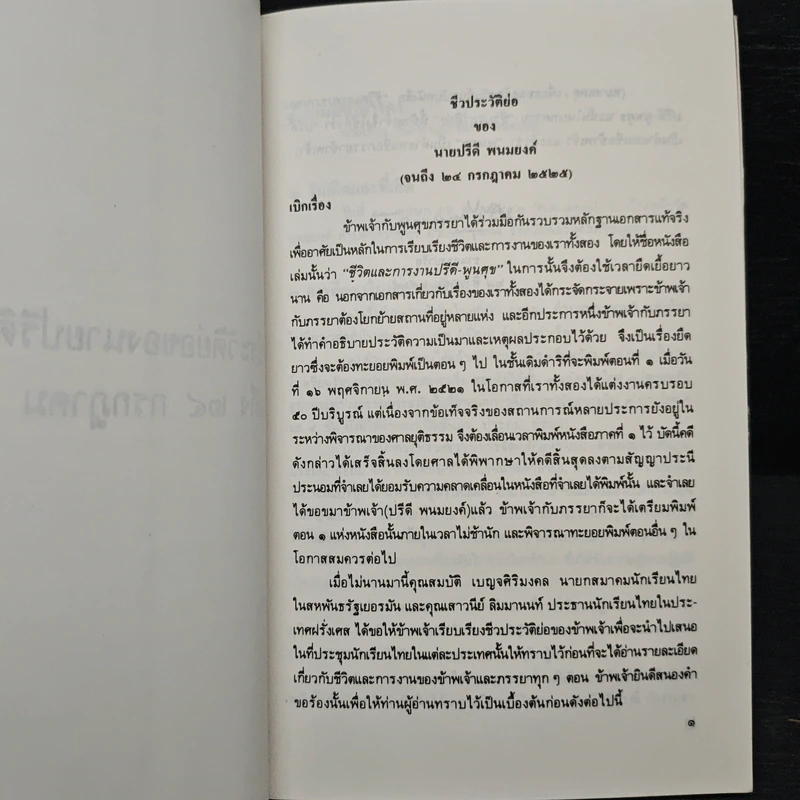 ชีวประวัติย่อ
ของ
นายปรีดี พนมยงค์
(จนถึง ๒๔ กรกฎาคม ๒๕๒๕)
เบิกเรื่อง
ข้าพเจ้ากับพูนศุขภรรยาได้ร่วมมือกันรวบรวมหลักฐานเอกสารแท้จริง
เพื่ออาศัยเป็นหลักในการเรียบเรียงชีวิตและการงานของเราทั้งสอง โดยให้ชื่อหนังสือ
เล่มนั้นว่า "ชีวิตและการงานปรีดี-พูนศุข" ในการนั้นจึงต้องใช้เวลายืดเยื้อยาว
นาน คือ นอกจากเอกสารเกี่ยวกับเรื่องของเราทั้งสองได้กระจัดกระจายเพราะข้าพเจ้า
กับภรรยาต้องโยกย้ายสถานที่อยู่หลายแห่ง และอีกประการหนึ่งข้าพเจ้ากับภรรยา
ได้ทำคำอธิบายประวัติความเป็นมาและเหตุผลประกอบไว้ด้วย จึงเป็นเรื่องยืด
ยาวซึ่งจะต้องทะยอยพิมพ์เป็นตอน ๆ ไป ในชั้นเดิมดำริที่จะพิมพ์ตอนที่ ๑ เมื่อวัน
ที่ ๑๖ พฤศจิกายน พ.ศ. ๒๕๒๑ ในโอกาสที่เราทั้งสองได้แต่งงานครบรอบ
๕๐ ปีบริบูรณ์ แต่เนื่องจากข้อเท็จจริงของสถานการณ์หลายประการยังอยู่ใน
ระหว่างพิจารณาของศาลยุติธรรม จึงต้องเลื่อนเวลาพิมพ์หนังสือภาคที่ ๑ ไว้ บัดนี้คดี
ดังกล่าวได้เสร็จสิ้นลงโดยศาลได้พิพากษาให้คดีสิ้นสุดลงตามสัญญาประนี
ประนอมที่จำเลยได้ยอมรับความคลาดเคลื่อนในหนังสือที่จำเลยได้พิมพ์นั้น และจำเลย
ได้ขอขมาข้าพเจ้า(ปรีดี พนมยงค์)แล้ว ข้าพเจ้ากับภรรยาก็จะได้เตรียมพิมพ์
ตอน ๑ แห่งหนังสือนั้นภายในเวลาไม่ช้านัก และพิจารณาทะยอยพิมพ์ตอนอื่น ๆ ใน
โอกาสสมควรต่อไป
เมื่อไม่นานมานี้คุณสมบัติ เบญจศิริมงคล นายกสมาคมนักเรียนไทย
ในสหพันธรัฐเยอรมัน และคุณเสาวนีย์ ลิมมานนท์ ประธานนักเรียนไทยในประ-
เทศฝรั่งเศส ได้ขอให้ข้าพเจ้าเรียบเรียงชีวประวัติย่อของข้าพเจ้าเพื่อจะนำไปเสนอ
ในที่ประชุมนักเรียนไทยในแต่ละประเทศนั้นให้ทราบไว้ก่อนที่จะได้อ่านรายละเอียด
เกี่ยวกับชีวิตและการงานของข้าพเจ้าและภรรยาทุก ๆ ตอน ข้าพเจ้ายินดีสนองคำ
ขอร้องนั้นเพื่อให้ท่านผู้อ่านทราบไว้เป็นเบื้องต้นก่อนดังต่อไปนี้
๑